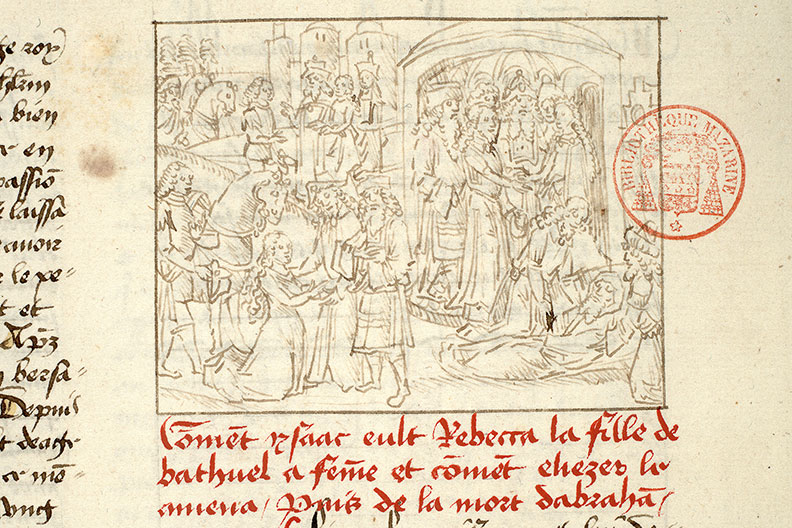 ge roy
bien
e en
passiõ
laissa
auoir
e le pe-
t et
Apz
bersa-
Depuis
t deage
e mo-
ung
BIBLIOTHÈQUE MAZARINE
Cõment ysaac eult Rebecca la fille de
bathuel a feme et cõment eliezer le
amena / Puis de la mort dabrahã /